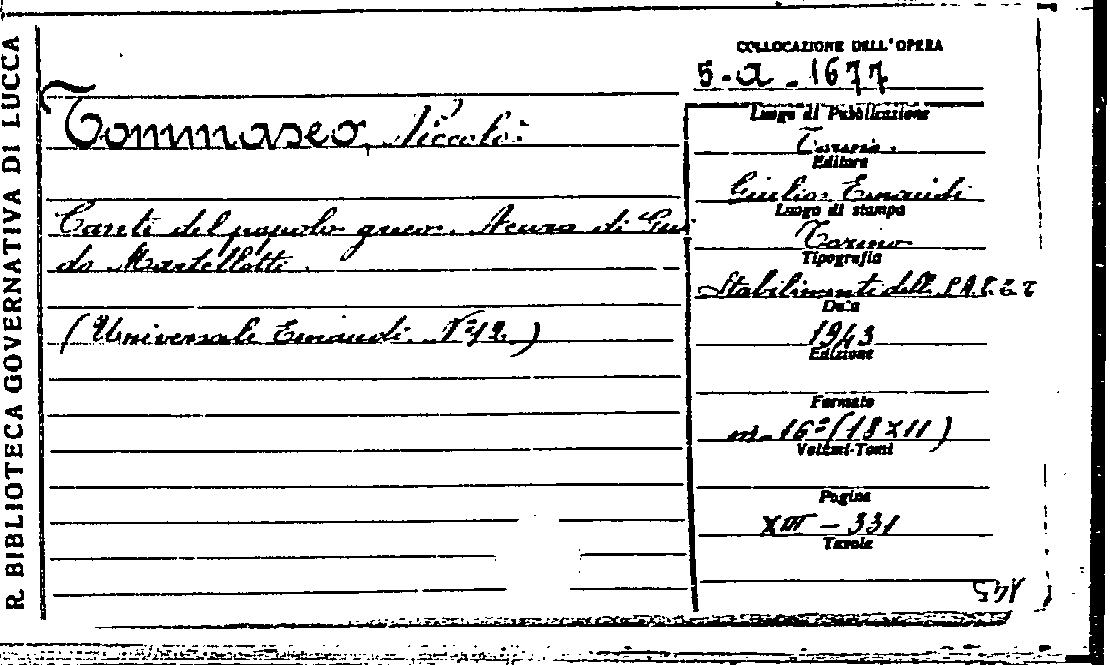 R. BIBLIOTECA GOVERNATIVA DI LUCCA
COLLOCAZIONE DELL'OPERA
5-a-1677
Tommaseo, Niccolò:
Canti del popolo greco. A cura di Gui
do Martellotti.
(Universale Einaudi. Nº 12.)
Luogo di Pubblicazione
Torino.
Editore
Giulio Einaudi
Luogo di stampa
Torino
Tipografia
Stabilimenti della S.A.C.E.T
Data
1943
Edizione
Formato
in-16º (18x11)
Volumi-Tomi
Pagine
XIII - 331
Tavole
145